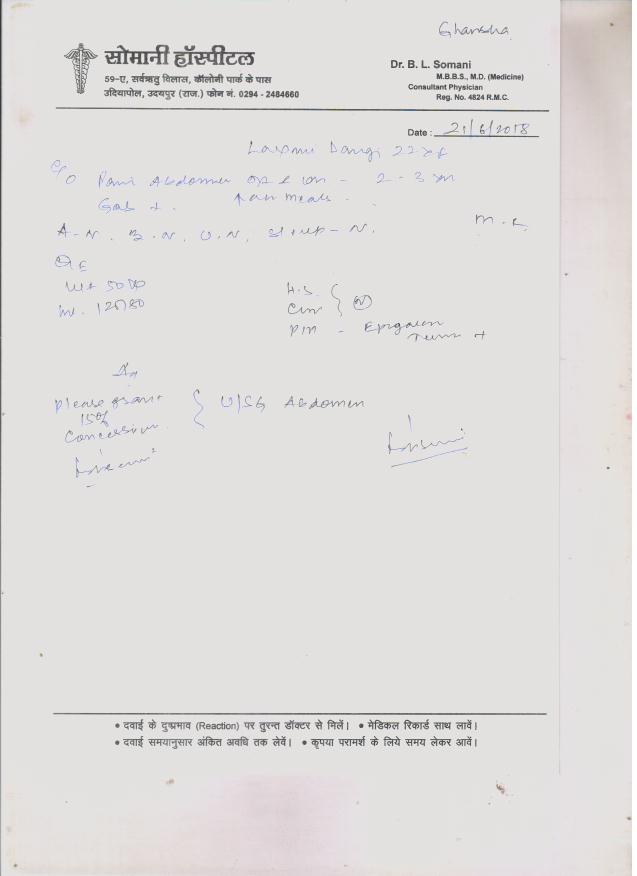 Ghansha
सोमानी हॉस्पीटल
59-ए, सर्वऋतु विलास, कॉलोनी पार्क के पास
उदियापोल, उदयपुर (राज.) फोन नं. 0294 - 2484660
Dr. B. L. Somani
M.B.B.S., M.D. (Medicine)
Consultant Physician
Reg. No. 4824 R.M.C.
Date : 21/6/2018
Laxmi Dangi 22 yr f
C/o Pain Abdomen - 2 - 3 m
Gas + . meals .
A - N . B . N , U . N , Sleep - N .
O/E
Wt 50
120/80
H.S.
P/A - Epigastric
+
Please grant
15%
Concession
U/SG Abdomen
• दवाई के दुष्प्रभाव (Reaction) पर तुरन्त डॉक्टर से मिलें। • मेडिकल रिकार्ड साथ लावें।
• दवाई समयानुसार अंकित अवधि तक लेवें। • कृपया परामर्श के लिये समय लेकर आवें।